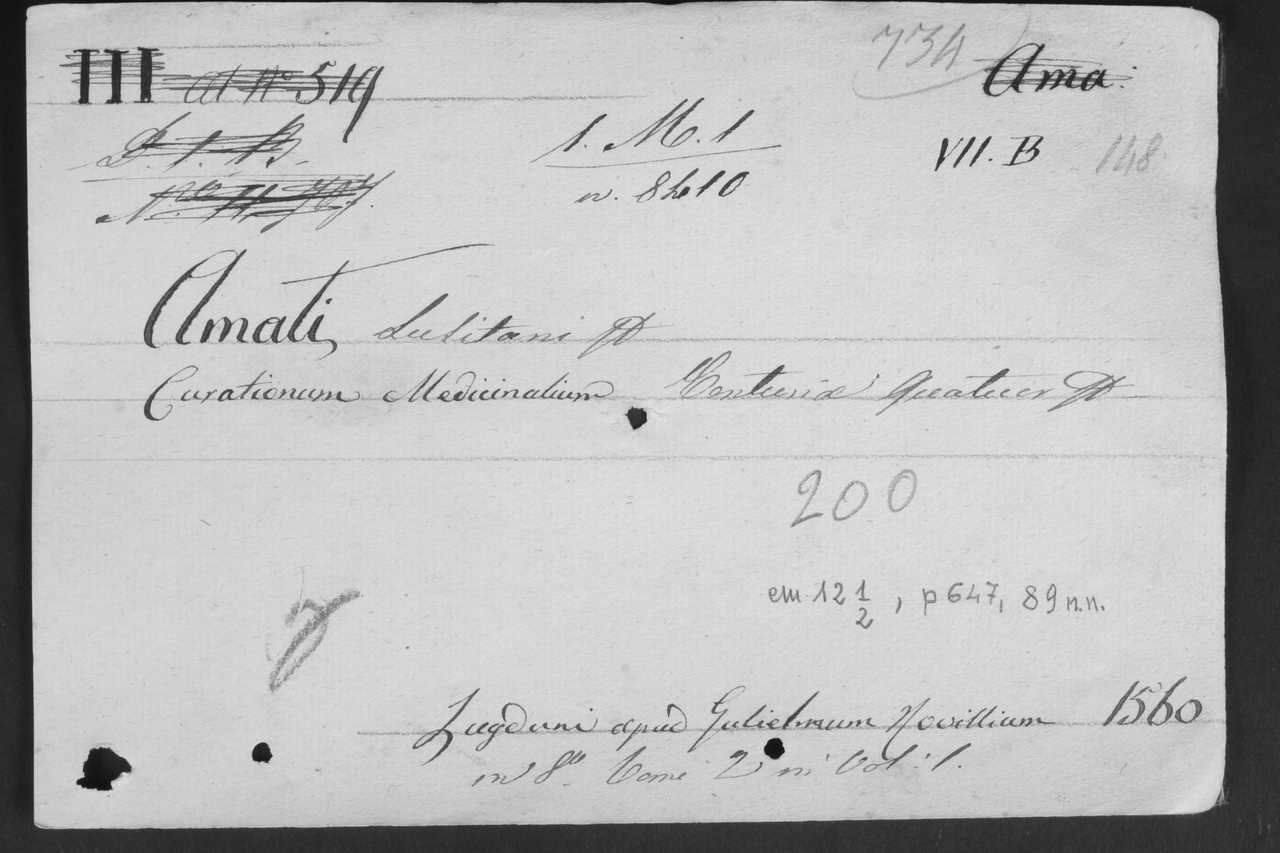 III al No 519
734
Ama.
1. M. 1
n. 8410
VII. B
148
Amati, Lusitani
Curationum Medicinalium Centuriæ Quatuor
200
cm 12 1/2, p 647, 89 n.n.
Lugduni apud Gulielmum Rovillium 1560
in 8° Tomi 2 in Vol: 1.